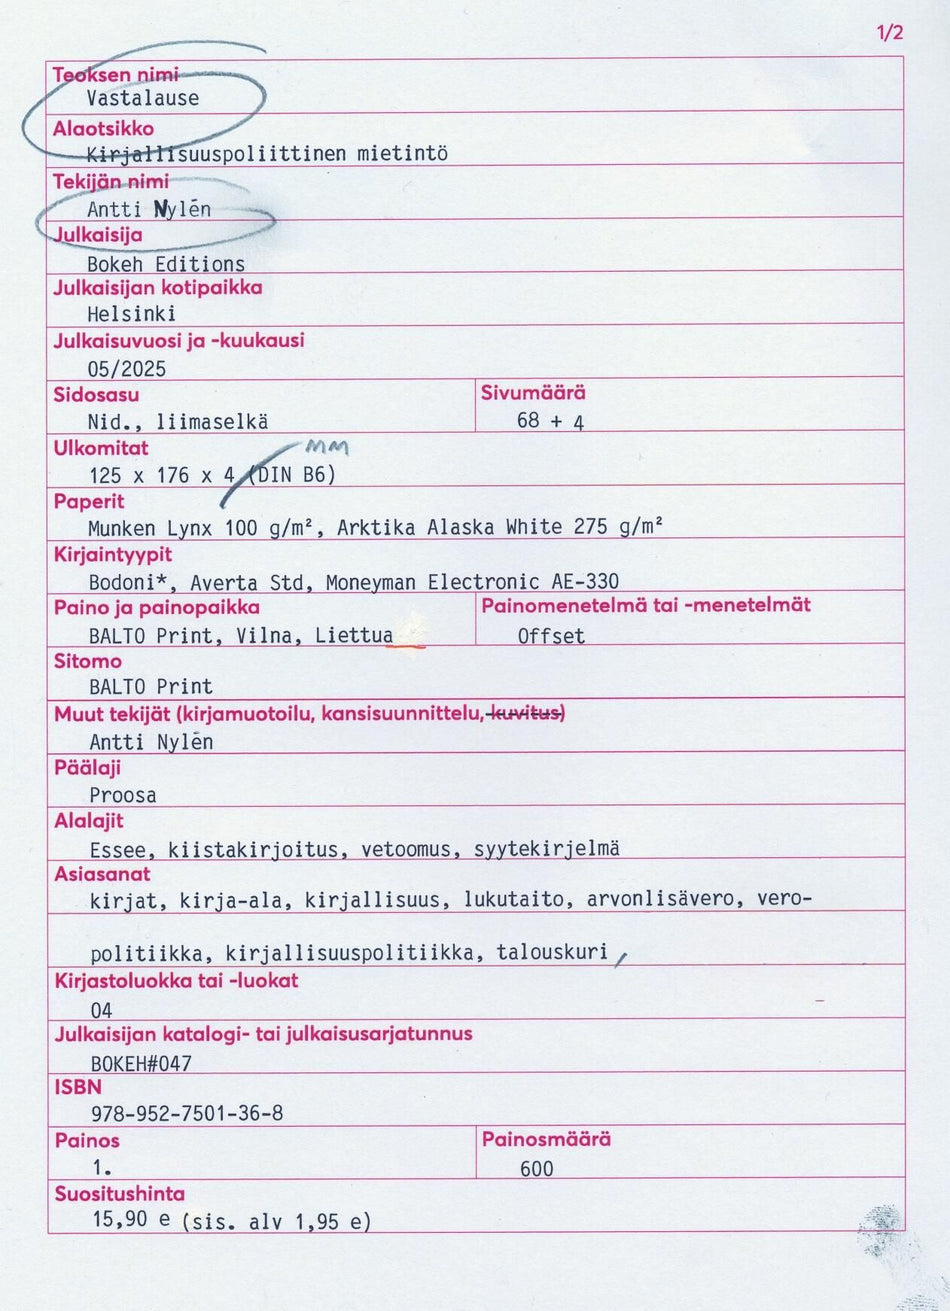 1/2
Teoksen nimi
Vastalause
Alaotsikko
Kirjallisuuspoliittinen mietintö
Tekijän nimi
Antti Nylén
Julkaisija
Bokeh Editions
Julkaisijan kotipaikka
Helsinki
Julkaisuvuosi ja -kuukausi
05/2025
Sidosasu
Nid., liimaselkä
Sivumäärä
68 + 4
Ulkomitat
MM
125 x 176 x 4 (DIN B6)
Paperit
Munken Lynx 100 g/m², Arktika Alaska White 275 g/m²
Kirjaintyypit
Bodoni*, Averta Std, Moneyman Electronic AE-330
Paino ja painopaikka
BALTO Print, Vilna, Liettua
Painomenetelmä tai -menetelmät
Offset
Sitomo
BALTO Print
Muut tekijät (kirjamuotoilu, kansisuunnittelu, kuvitus)
Antti Nylén
Päälaji
Proosa
Alalajit
Essee, kiistakirjoitus, vetoomus, syytekirjelmä
Asiasanat
kirjat, kirja-ala, kirjallisuus, lukutaito, arvonlisävero, vero-
politiikka, kirjallisuuspolitiikka, talouskuri,
Kirjastoluokka tai -luokat
04
Julkaisijan katalogi- tai julkaisusarjatunnus
BOKEH#047
ISBN
978-952-7501-36-8
Painos
1.
Painosmäärä
600
Suositushinta
15,90 e (sis. alv 1,95 e)